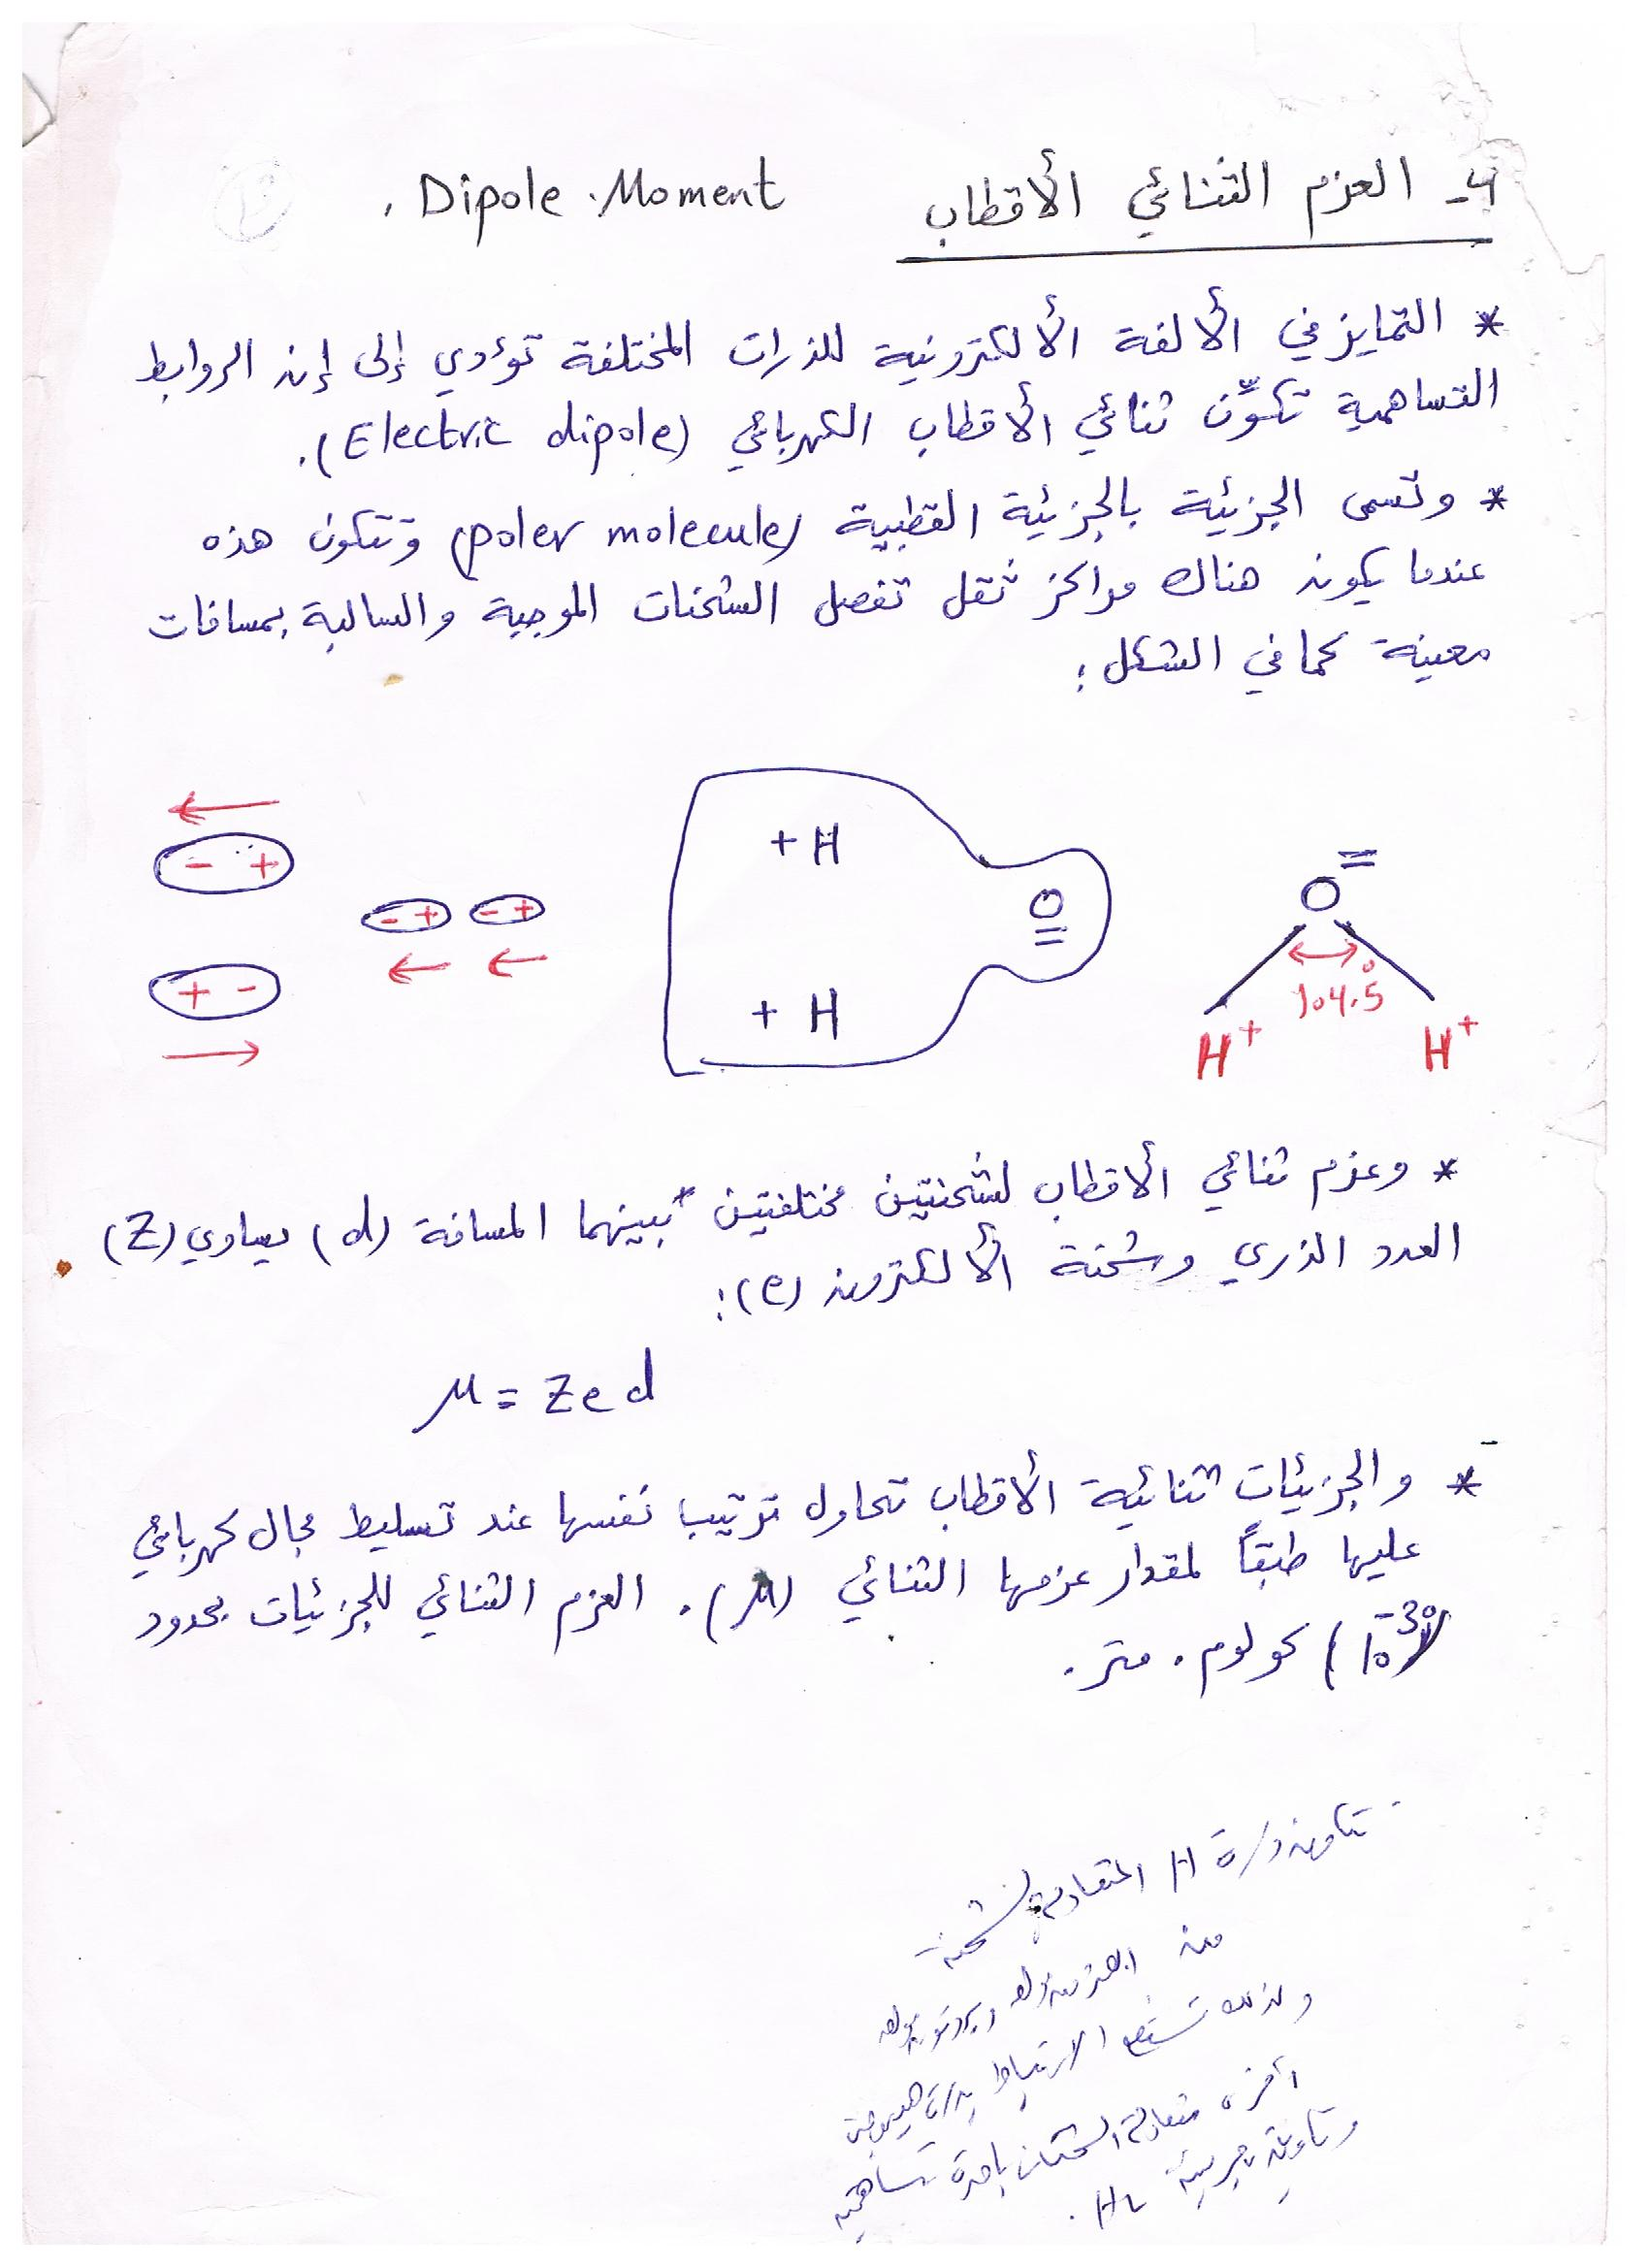 4- العزم الثنائي الأقطاب Dipole Moment .
* التمايز في الألفة الألكترونية للذرات المختلفة تؤدي إلى إن الروابط
التساهمية تكوّن ثنائي الأقطاب الكهربائي (Electric dipole).
* وتسمى الجزئية بالجزئية القطبية (poler molecule) وتتكون هذه
عندما يكون هناك مراكز ثقل تفصل الشحنات الموجبة والسالبة بمسافات
معينة كما في الشكل :
← - + - + - + ← ←
+ - →
+ H
O =
+ H
O =
104.5°
H+ H+
* وعزم ثنائي الأقطاب لشحنتين مختلفتين بينهما المسافة (d) يساوي (Z)
العدد الذري وشحنة الألكترون (e) :
μ = Z e d
* والجزئيات ثنائية الأقطاب تحاول ترتيب نفسها عند تسليط مجال كهربائي
عليها طبقاً لمقدار عزمها الثنائي (μ). العزم الثنائي للجزئيات بحدود
(10⁻³⁰) كولوم . متر .
ذرة H المتعادلة الشحنة
من
الارتباط بذرة
أخرى متعادلة الشحنة تساهمية
H₂ .